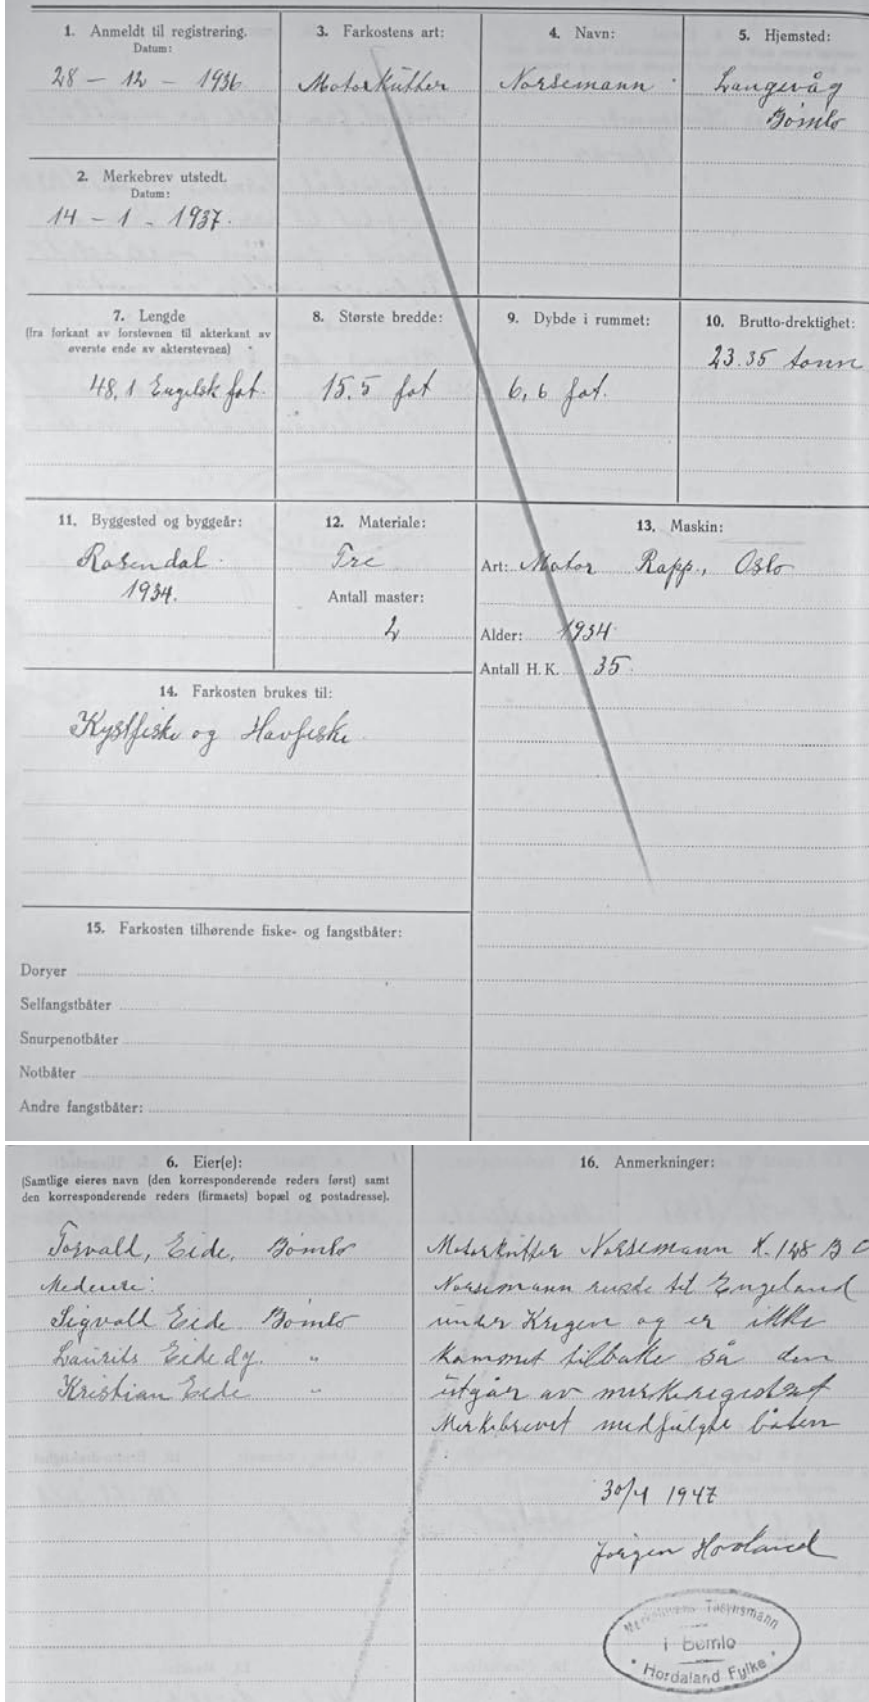 1. Anmeldt til registrering.
Datum:
28 – 12 – 1936
2. Merkebrev utstedt.
Datum:
14 – 1 – 1937.
3. Farkostens art:
Motorkutter
4. Navn:
Norsemann
5. Hjemsted:
Langevåg
Bömlo
7. Lengde
(fra forkant av forstevnen til akterkant av
øverste ende av akterstevnen)
48,1 Engelsk fot.
8. Største bredde:
15.5 fot
9. Dybde i rummet:
6,6 fot.
10. Brutto-drektighet:
23.35 tonn
11. Byggested og byggeår:
Rosendal.
1934.
12. Materiale:
Tre
Antall master:
2
13. Maskin:
Art: Motor Rapp., Oslo
Alder: 1934
Antall H. K. 35
14. Farkosten brukes til:
Kystfiske og Havfiske
15. Farkosten tilhørende fiske- og fangstbåter:
Doryer
Selfangstbåter
Snurpenotbåter
Notbåter
Andre fangstbåter:
6. Eier(e):
(Samtlige eieres navn (den korresponderende reders først) samt
den korresponderende reders (firmaets) bopæl og postadresse).
Torvald, Eide, Bømlo
Medeiere:
Sigvald Eide Bömlo
Laurits Eide dy. "
Kristian Eide "
16. Anmerkninger:
Motorkutter Norsemann H. 148 B
Norsemann reiste til Engeland
under Krigen og er ikke
kommet tilbake så den
utgår av merkeregistret
Merkebrevet medfulgte båten
30/4 1947
Jørgen Hovland
Tilsynsmann
i Bømlo
Hordaland Fylke